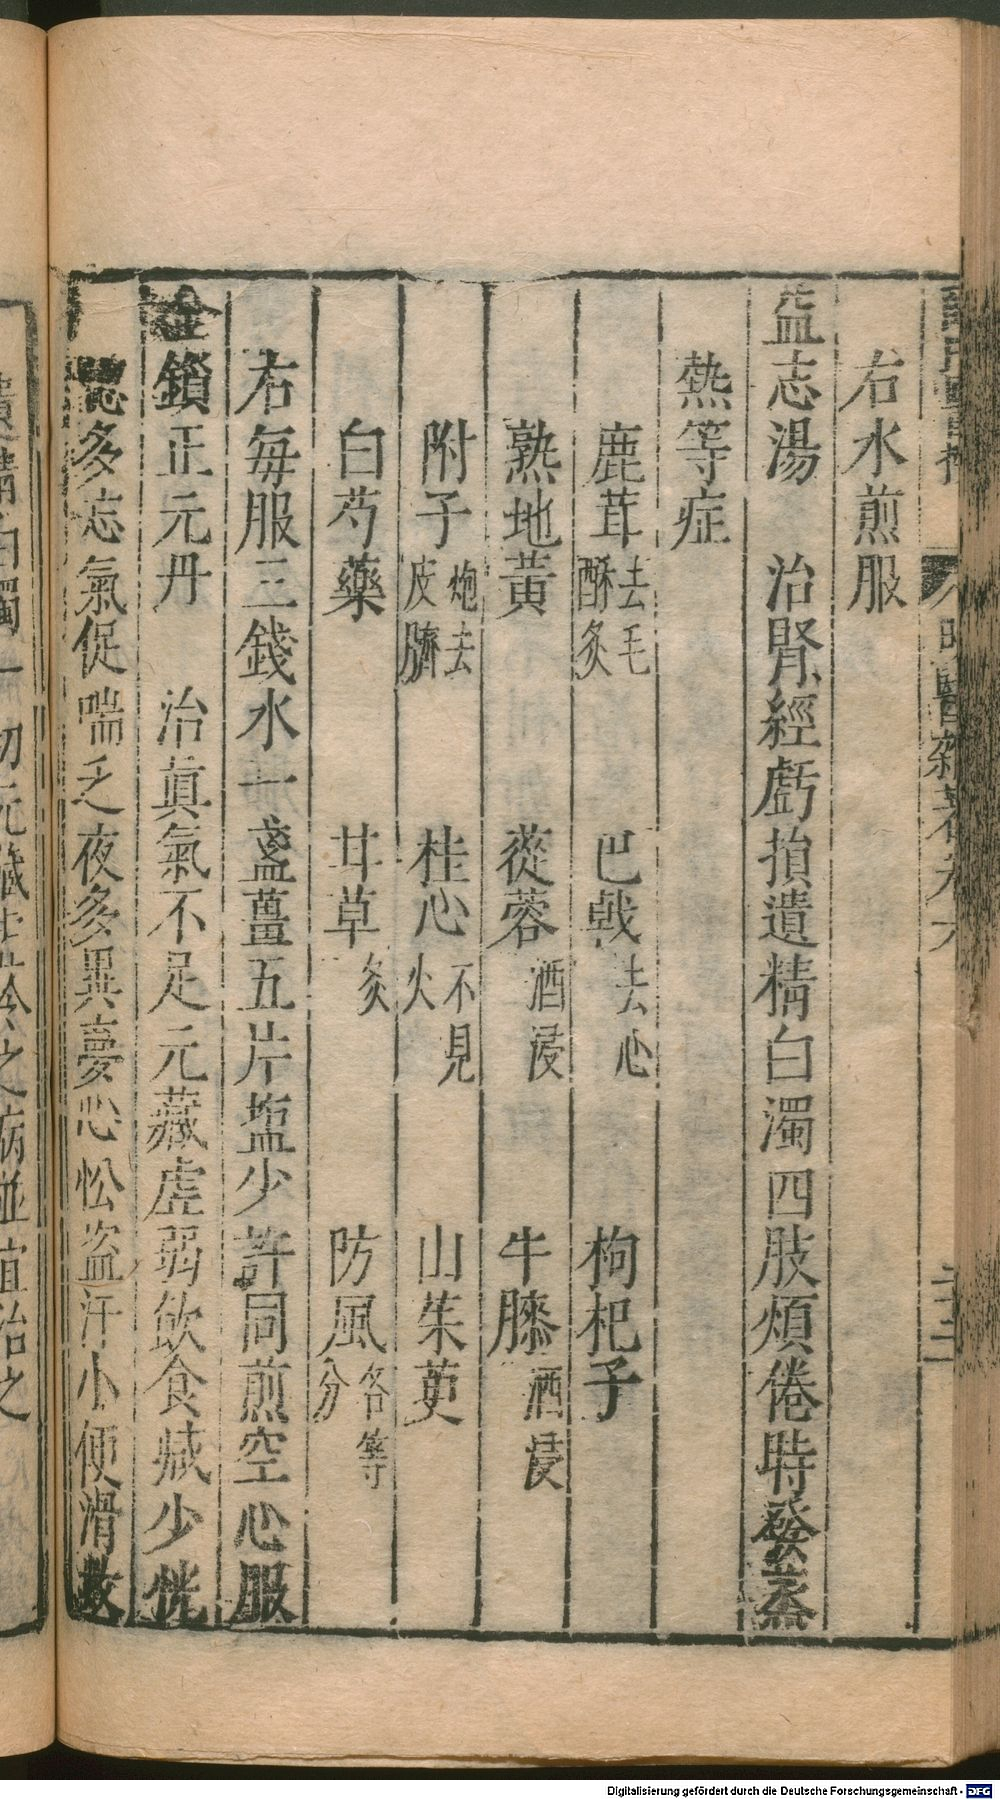 右水煎服
益志湯　治腎經虧損遺精白濁四肢煩倦時發蒸
熱等症
鹿茸去毛酥炙　巴戟去心　枸杞子
熟地黃　蓯蓉酒浸　牛膝酒浸
附子炮去皮臍　桂心不見火　山茱萸
白芍藥　甘草炙　防風各等分
右每服三錢水一盞薑五片塩少許同煎空心服
金鎖正元丹　治眞氣不足元藏虛弱飮食減少恍
惚多忘氣促喘乏夜多異夢心忪盗汗小便滑數
遺精白濁一切元藏
之病並宜治之
Digitalisierung gefördert durch die Deutsche Forschungsgemeinschaft - DFG